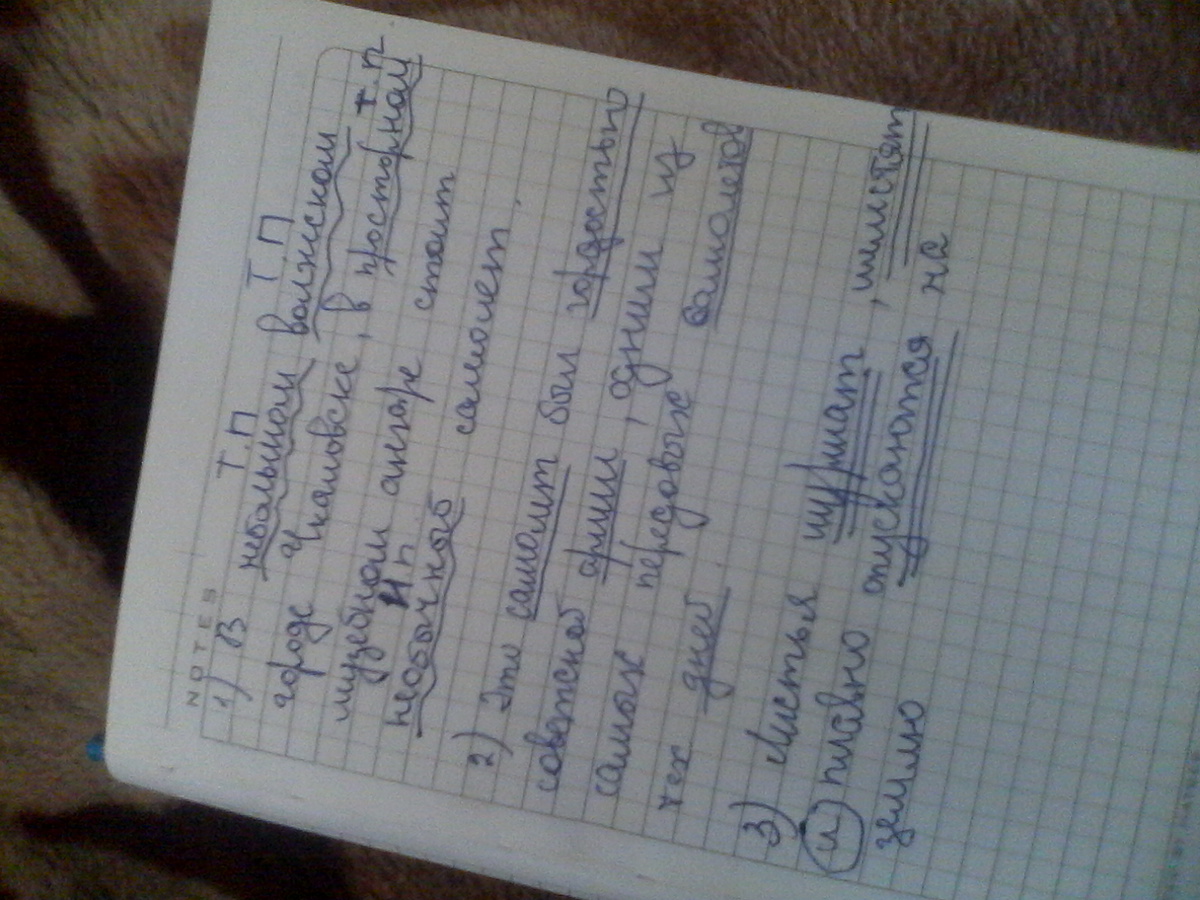 NOTES
Т.П Т.П
1) В небольшом волжском
городе Чкаловске, в просторном Т.П.
музейном ангаре стоит
И П
необычной самолет.
2) Это самолит был гордостью
советской армии, одним из
самых передовых самолетов
тех дней.
3) Листья шуршат, шелистят
и плавно опускаются на
землю